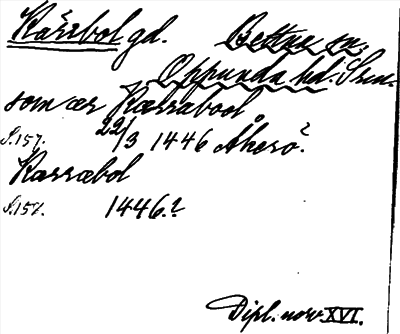 Kärrbol gd. Bettna sn.
Oppunda hd. Srm.
som ær Kærrabool
S.157. 22/3 1446 Åkerö?
Karrabol
S.157. 1446.?
Dipl. norv. XVI.